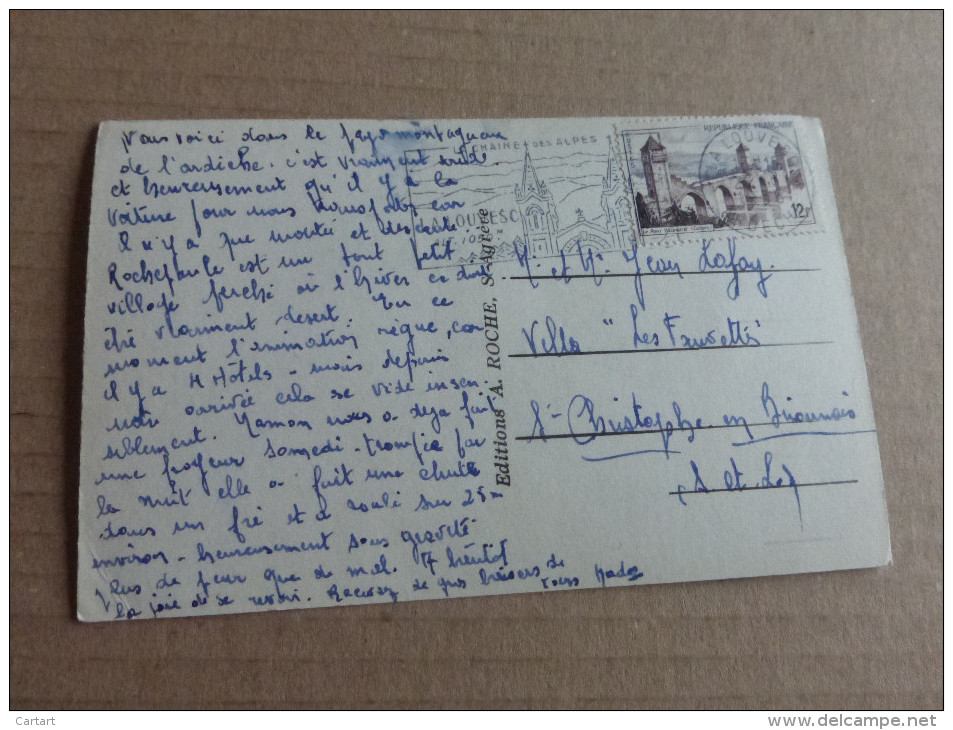 Nous voici dans le pays montagneux
de l'ardèche. c'est vraiment rude
et heureusement qu'il y a la
voiture pour nous transporter car
il n'y a que montée et descente.
Rochepaule est un tout petit
village perché où l'hiver ce doit
être vraiment desert. En ce
moment l'animation règne, car
il y a 4 Hôtels - mais depuis
notre arrivée cela se vide insen
siblement. Maman nous a deja fait
une frayeur samedi - trompée par
la nuit elle a fait une chute
dans un pré et a roulé sur 25m
environ - heureusement sans gravité
Plus de peur que de mal. A bientôt
la joie de se revoir. Recevez de gros baisers de
tous
CHAINE DES ALPES
LALOUVESC
ALT. 1050 m
REPUBLIQUE FRANÇAISE
12F
Editions A. ROCHE, St-Agrève
Mr et Me Jean Lafay.
Villa "Les Fauvettes"
St-Christophe en Brionnais
(S. et L.)
Cartart
www.delcampe.net